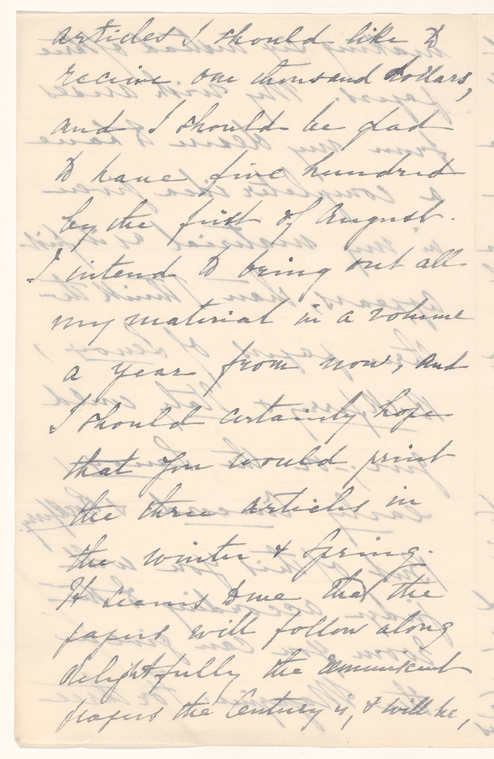 articles I should like to
receive one thousand dollars,
and I should be glad
to have five hundred
by the first of August.
I intend to bring out all
my material in a volume
a year from now, and
I should certainly hope
that you would print
the three articles in
the winter & spring.
It seems to me that the
papers will follow along
delightfully the
papers the Century is, & will be,